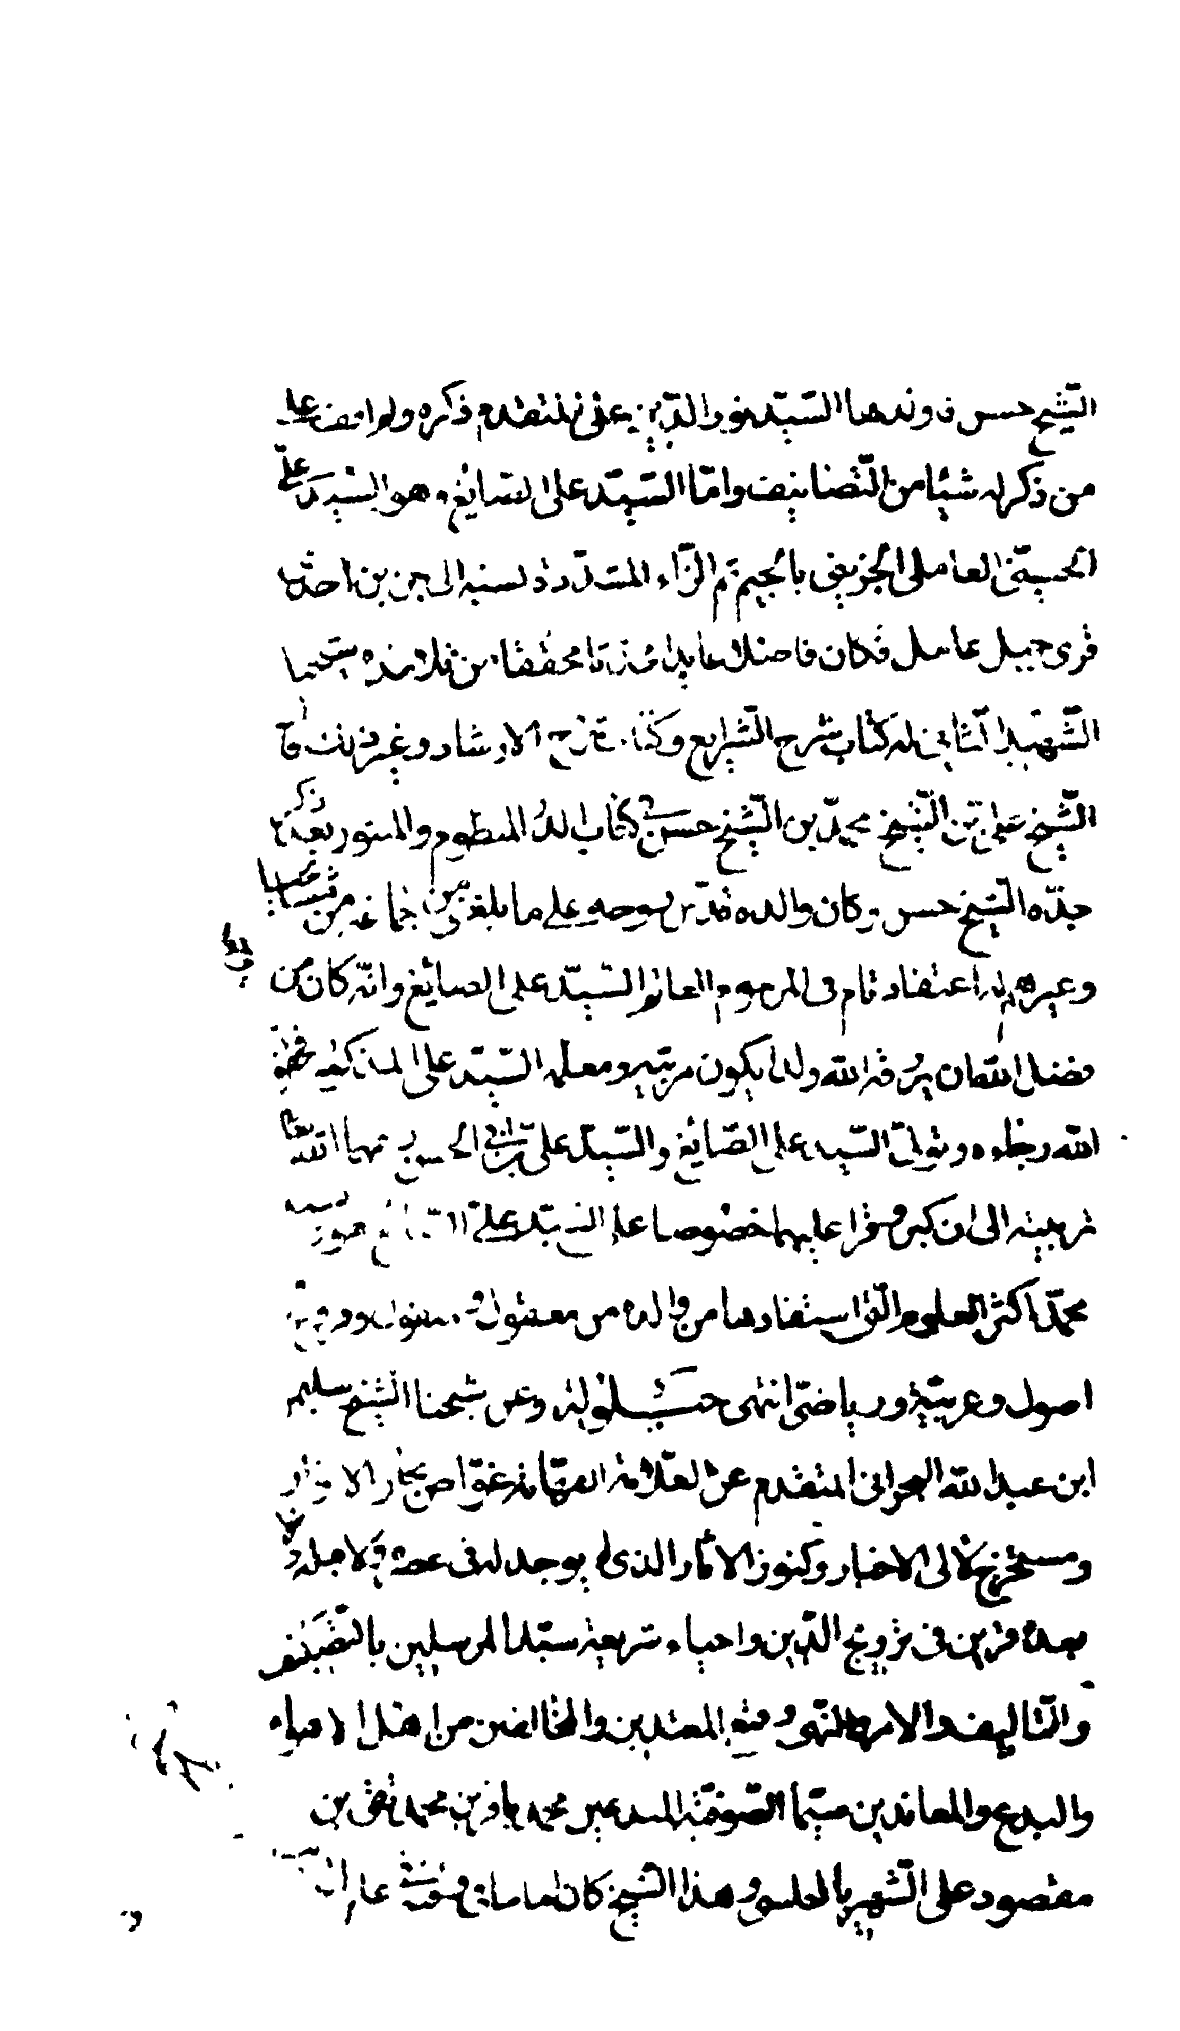 الشيخ حسن و ولدها السيد نور الدين علي المتقدم ذكره ولم اقف على
من ذكر له شيئا من التصانيف واما السيد على الصايغ فهو السيد علي
الحسيني العاملى الجزيني بالجيم ثم الزاء المشددة نسبة الى جزين احد
قرى جبل عامل فكان فاضلا عابدا محققا من تلامذة شيخنا
الشهيد الثاني له كتاب شرح الشرايع وكتاب شرح الارشاد وغير ذلك قال
الشيخ على بن الشيخ محمد بن الشيخ حسن في كتاب الدر المنظوم والمنثور بعد ذكر
جده الشيخ حسن وكان والده قدس روحه على ما بلغني من جماعة من مشايخنا
وغيرهم له اعتقاد تام فى المرحوم العالم السيد على الصايغ وانه كان من
فضل الله ان يرزقه الله ولدا يكون مربيه ومعلمه السيد على المذكور فحقق
الله رجاءه وتولى السيد على الصايغ والسيد على بن ابي الحسن رحمهما الله تعالى
تربيته الى ان كبر وقرا عليهما خصوصا على السيد على الصايغ هو والسيد
محمد اكثر العلوم التى استفادها من والده من معقول ومنقول وفروع
اصول وعربية ورياضى انتهى حيلولة وعن شيخنا الشيخ سليمان
ابن عبد الله البحرانى المتقدم عن العلامة الفهامة غواص بحار الانوار
ومستخرج لآلى الاخبار وكنوز الاثار الذى لم يوجد له فى عصره ولا قبله ولا
بعده قرين فى ترويج الدين واحياء شريعة سيد المرسلين بالتصنيف
والتاليف والامر والنهى وقمع المعتدين والمخالفين من اهل الاهواء
والبدع والمعاندين سيما الصوفية المبدعين محمد باقر بن محمد تقى بن
مقصود على الشهير بالمجلسى وهذا الشيخ كان اماما فى وقته في علم